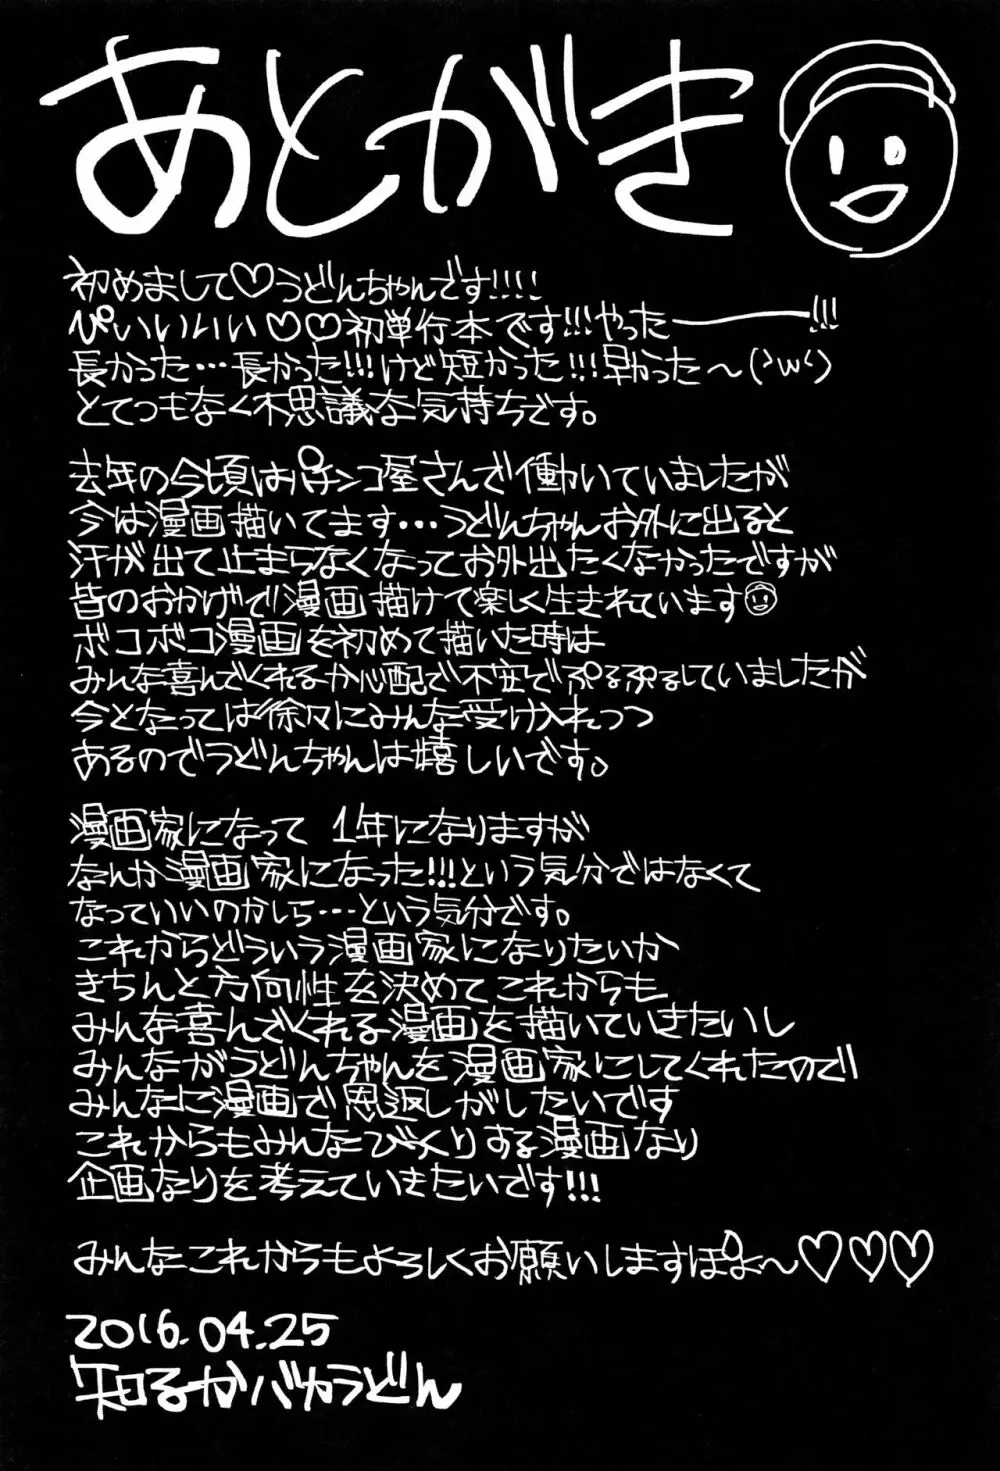 あとがき
初めまして♡うどんちゃんです!!!!
ぴぃいいいい♡♡初単行本です!!!やったーーー!!!
長かった…長かった!!!けど短かった!!!早かった〜(˃ω˂)
とてつもなく不思議な気持ちです。
去年の今頃はパチンコ屋さんで働いていましたが
今は漫画描いてます…うどんちゃんお外に出ると
汗が出て止まらなくなってお外出たくなかったですが
皆のおかげで漫画描けて楽しく生きれています
ボコボコ漫画を初めて描いた時は
みんな喜んでくれるか心配で不安でぷるぷるしていましたが
今となっては徐々にみんな受け入れつつ
あるのでうどんちゃんは嬉しいです。
漫画家になって 1年になりますが
なんか漫画家になった!!!という気分ではなくて
なっていいのかしら…という気分です。
これからどういう漫画家になりたいか
きちんと方向性を決めてこれからも
みんな喜んでくれる漫画を描いていきたいし
みんながうどんちゃんを漫画家にしてくれたので
みんなに漫画で恩返しがしたいです
これからもみんなびっくりする漫画なり
企画なりを考えていきたいです!!!
みんなこれからもよろしくお願いしますぽよ〜♡♡♡
2016.04.25
知るかバカうどん